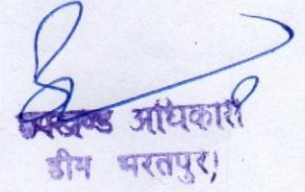 उपखण्ड अधिकारी
डीग भरतपुर।